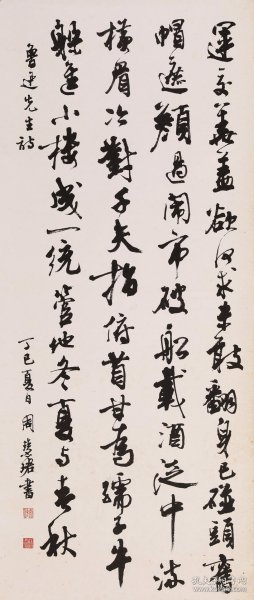 運交華蓋欲何求未敢翻身已碰頭舊
帽遮顏過鬧市破船載酒泛中流
橫眉冷對千夫指俯首甘為孺子牛
躲進小樓成一統管他冬夏与春秋
魯迅先生詩
丁巳夏日周慧珺書